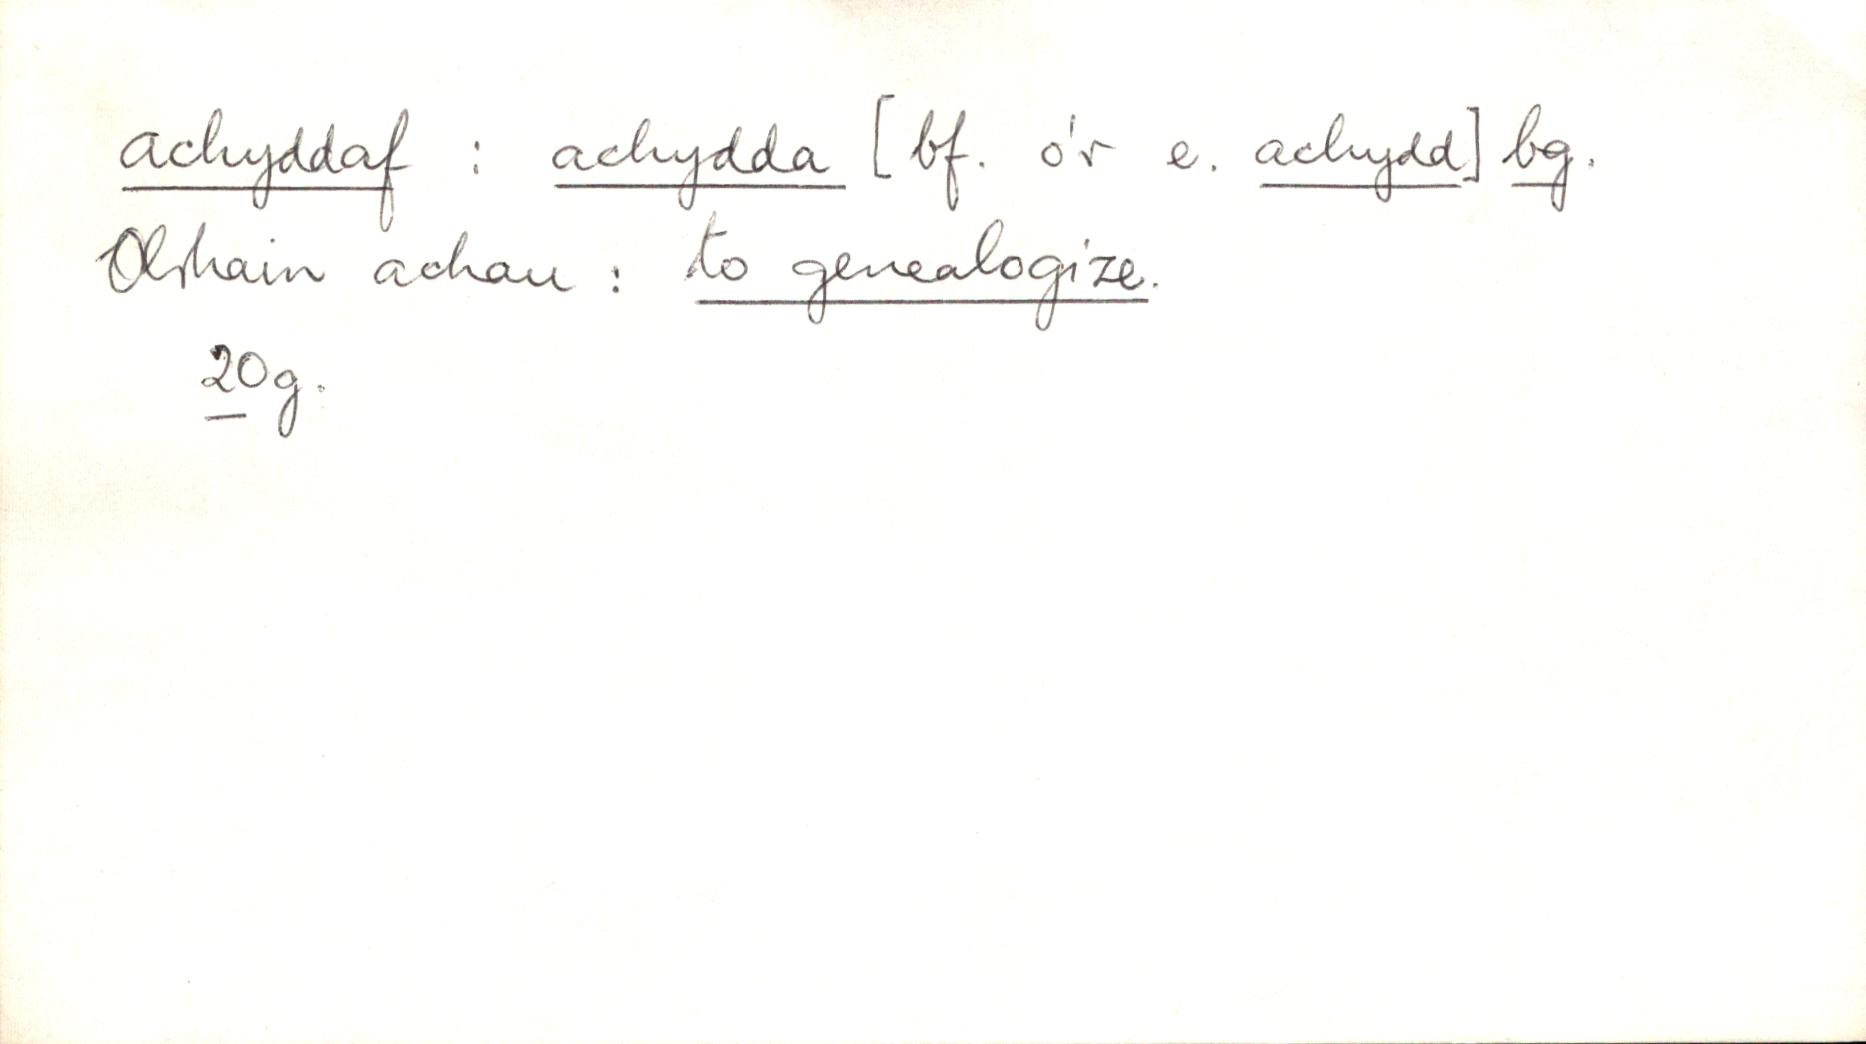 achyddaf : achydda [bf. o'r e. achydd] bg.
Olrhain achau : to genealogize.
20g.